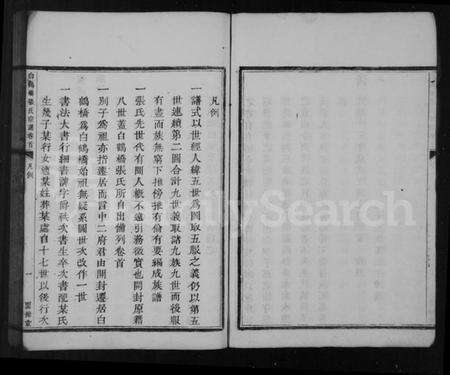 凡例
一譜式以世經人緯五世爲圖取五服之義仍以第五
世連續第二圖合計九世義取諸九族九世而後服
有盡而族無窮下推傍推有倫有要福成族譜
一張氏先世代有聞人概不遠引務徵實也開封原籍
八世蓋白鶴橋張氏所自出備列卷首
一別子爲祖亦指遷居而言中二府君由開封遷居白
鶴橋爲白鶴橋始祖無疑系圖世次改作一世
一書法大書行細書諱字附祇次書生卒次書配某氏
生幾子某行女適某姓葬某處自十七世以後行次
白鶴橋張氏宗譜卷首
凡例
一
FamilySearch